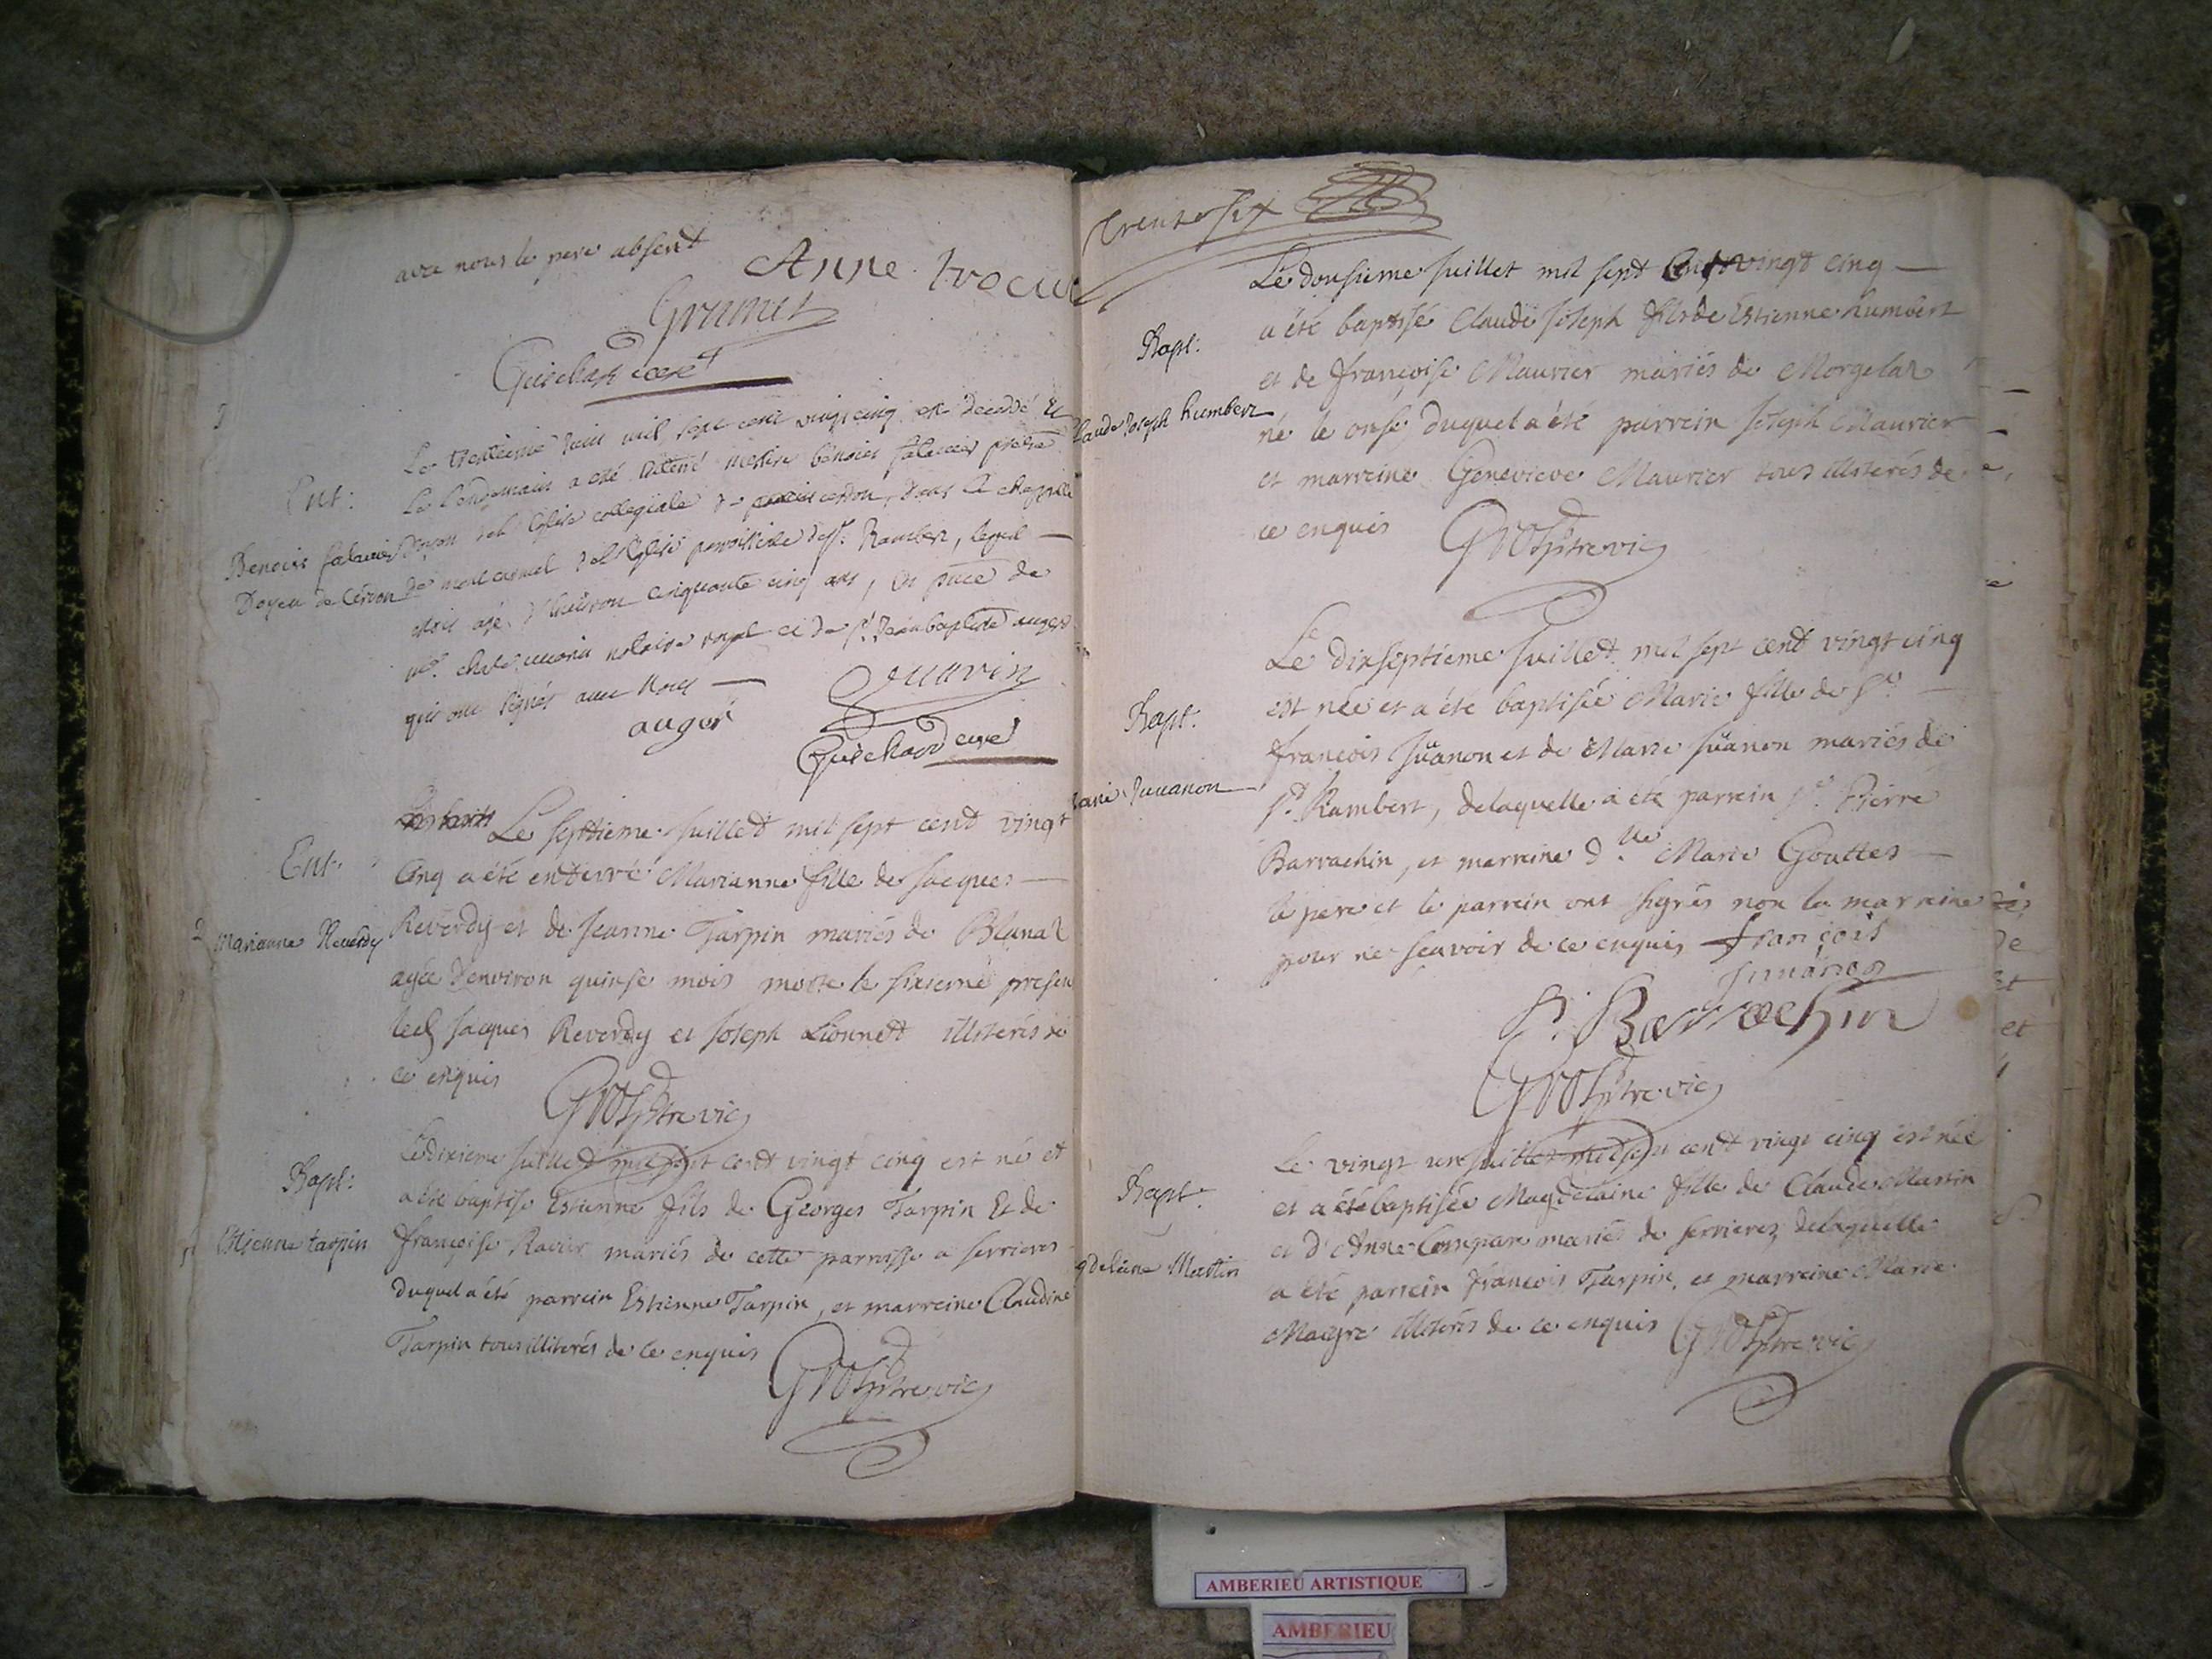 avec nous le pere absent
Anne
Grumet
Guichard curé
Ent:
Benoist falavier
Doyen de Cerdon
Le trentieme Juin mil sept cent vingt cinq est decedé et
Le lendemain a été enterré messire benoist falavier prestre
Doyen de l'Eglise collegiale de cerdon, dans la chappelle
de mont carmel de l'Eglise parroissiale de st. Rambert, lequel
étoit agé d'environ cinquante cinq ans, en pnce de
me. notaire royal et de sr. Jean baptiste auger
qui ont signés avec nous
auger
Guichard curé
Ent.
Marianne Reverdy
Le septieme juillet mil sept cent vingt
Cinq a été enterré Marianne fille de jacques
Reverdy et de jeanne Tarpin mariés de Blanaz
agée d'environ quinse mois morte le sixieme presens
lesd jacques Reverdy et joseph Lionnet illiterés de
ce enquis
Gros ptre vic
Bapt:
Estienne tarpin
Le dixieme juillet mil sept cent vingt cinq est né et
a été baptisé Estienne fils de Georges Tarpin Et de
françoise Ravier mariés de cette parroisse a serrieres
duquel a été parrein Estienne Tarpin, et marreine Claudine
Tarpin tous illiterés de ce enquis
Gros ptre vic
trente six
Bapt:
laude Joseph humbert
Le dousieme juillet mil sept cent vingt cinq
a été baptisé Claude joseph fils de Estienne humbert
et de françoise Maurier mariés de Morgelaz
né le onse duquel a été parrein joseph Maurier
et marreine Genevieve Maurier tous illiterés de
ce enquis
Gros ptre vic
Bapt:
arie Juuanon
Le dixseptieme juillet mil sept cent vingt cinq
est née et a été baptisée Marie fille de sr
françois juanon et de Marie juanon mariés de
st Rambert, delaquelle a été parrein sr. Pierre
Barrachin, et marreine dlle Marie Gouttes
le pere et le parrein ont signés non la marreine
pour ne scavoir de ce enquis françois
juuanon
P. Barrachin
Gros ptre vic
Bapt.
gdeleine Martin
Le vingt un juillet mil sept cent vingt cinq est née
et a été baptisée Magdelaine fille de Claude Martin
et d'Anne Compare mariés de serrieres delaquelle
a été parrein françois Tarpin, et marreine Marie
Magre illiterés de ce enquis
Gros ptre vic
de
et
et
AMBERIEU ARTISTIQUE
AMBERIEU